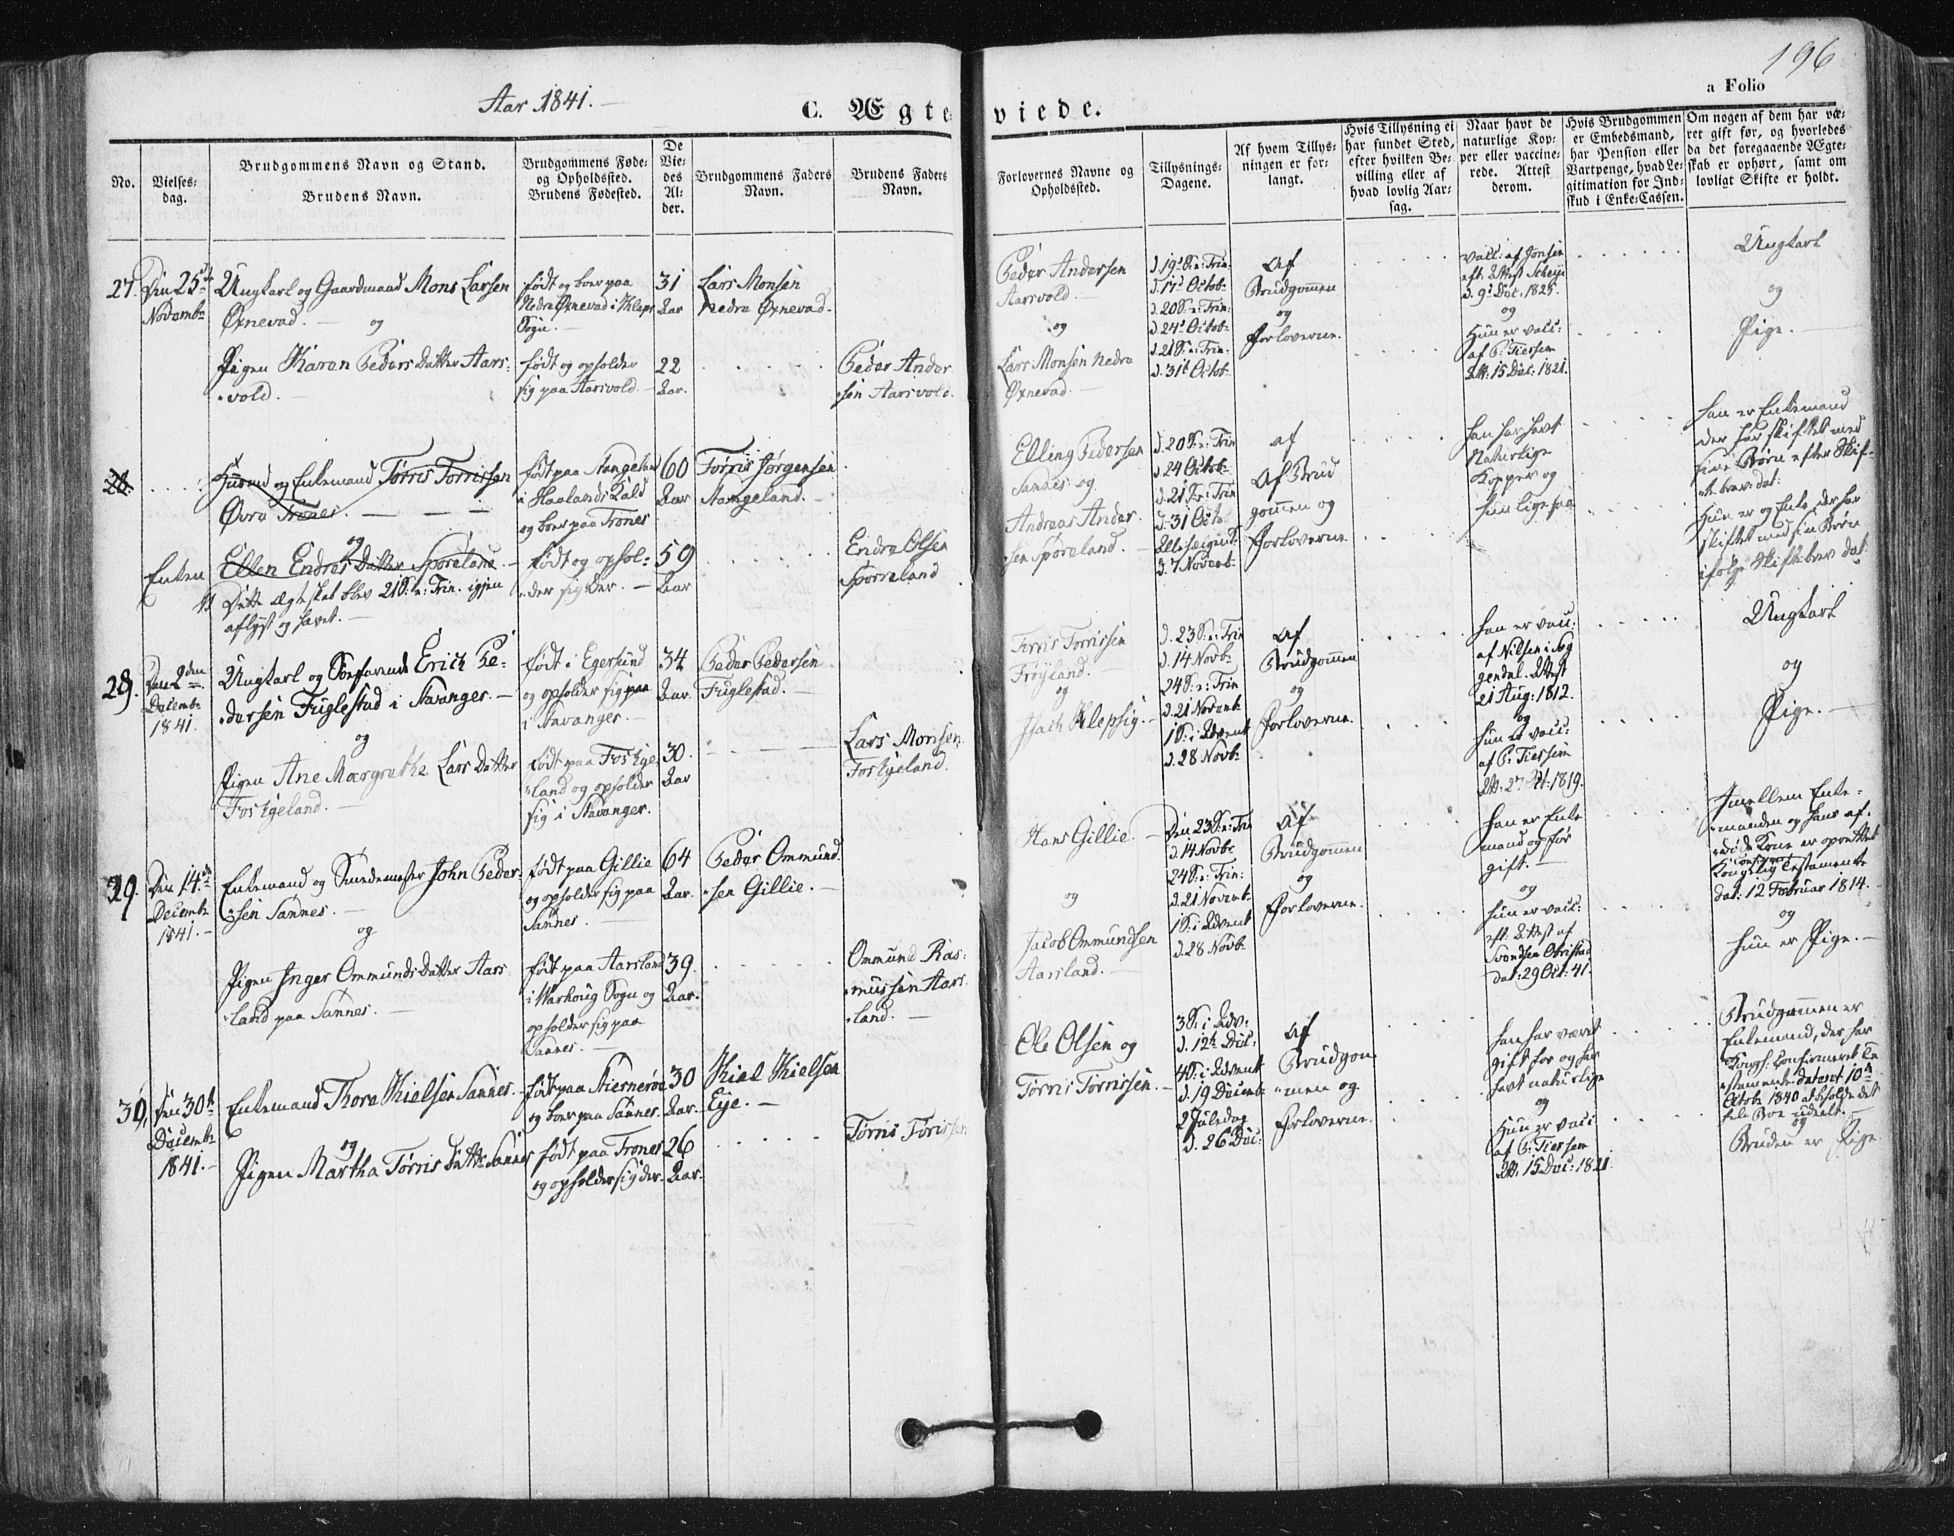 Aar 1841.
C. Ægteviede.
196
a Folio
No.
Vielses-
dag.
Brudgommens Navn og Stand.
Brudens Navn.
Brudgommens Føde-
og Opholdssted.
Brudens Fødested.
De
Vie-
des
Al-
der.
Brudgommens Faders
Navn.
Brudens Faders
Navn.
Forlovernes Navne og
Opholdssted.
Tillysnings-
Dagene.
Af hvem Tillys-
ningen er for-
langt.
Hvis Tillysning ei
har fundet Sted,
efter hvilken Be-
villing eller af
hvad lovlig Aar-
sag.
Naar havt de
naturlige Kop-
per eller vaccine-
rede. Attest
derom.
Hvis Brudgommen
er Embedsmand,
har Pension eller
Vartpenge, hvad Le-
gitimation for Ind-
skud i Enke-Cassen.
Om nogen af dem har væ-
ret gift før, og hvorledes
da det foregaaende Ægte-
skab er ophørt, samt om
lovligt Skifte er holdt.
27.
Den 25de
Novembr
Ungkarl og Gaardmand Mons Larsen
Øxnevad. — og
Pigen Karen Peders Datter Aars-
vold. —
født og boer paa
Nedre Øxnevad i Kleps
Sogn. —
født og opholder
sig paa Aarsvold —
31
Aar
22
Aar.
Lars Monsen
Nedre Øxnevad.
Peder Ander
sen Aarsvold.
Peder Andersen
Aarsvold. —
og
Lars Monsen Nedre
Øxnevad. —
d. 19de S. e: Trin:
d. 17de Octob:
d. 20 S. e: Trin:
d. 24de Octob:
d. 21 S. e: Trin:
d. 31te Octob:
Af
Brudgommen
og
Forloverne.
vacc: af Jonsen
eft: Attest Scheije
d. 9de Dec: 1825.
og
Hun er vacc:
af P: Tiersen
Att: 15 Dec: 1821.
Ungkarl
og
Pige. —
28.
Enken
Huusmd og Enkemand Tørris Torrissen
Øvre Trones. — — —
og
Ellen Endres Datter Sporeland. —
Dette Ægteskab blev 21 S. e: Trin. igjen
aflyst og hævet. —
født paa Stangeland
i Haalands Kald
og boer paa Trones
født og ophol-
der sig der. —
60
Aar
59
Aar
Tørris Jørgensen
Stangeland. —
Endre Olsen
Sporreland
Elling Pedersen
Sandnes og
Andreas Ander-
sen Sporeland. —
d. 20 S. e: Trin
d. 24 Octob:
d. 21 S. e: Trin
d. 31 Octo:
Allehelgensd:
d. 7 Novemb:
af
Af Brud
gommen og
Forloverne
Han har havt
Naturlige
Kopper og
hun ligesaa
Han er Enkemand
der har skiftet med
sine Børn efter Skif-
tebrev dat:
Hun er og Enke, der har
skiftet med sin Børn
ifølge Skiftebrev dat
28.
Den 2den
Decembr
1841.
Ungkarl og Søefarende Erich Pe-
dersen Fuglestad i Stavanger. —
og
Pigen Ane Margrethe Lars Datter
Foskjeland. —
født i Egersund
og opholder sig paa
i Stavanger. —
født paa Foskje
land og opholder
sig i Stavanger.
34
Aar.
30.
Aar
Peder Pedersen
Fuglestad. —
Lars Monsen
Foskjeland.
Tørris Torrissen
Frøyland.
og
Isach Klepsig. —
d. 23 S. e: Trin
d. 14 Novb:
24 S. e: Trin
d. 21 Novemb
1 S. i Advent
d. 28 Novb:
Af
Brudgommen
og
Forloverne.
Han er vacc:
af Nilsen i Sog
gendal. Attest
21 Aug: 1812.
og
Hun er vacc:
af P: Tiersen
Att: 2de Oct: 1819.
Ungkarl
og
Pige. —
29.
Den 14de
Decembr
1841. —
Enkemand og Smedemester John Peder-
sen Sannes. —
og
Pigen Inger Ommunds Datter Aars
land paa Sannes. —
født paa Gillie
og opholder sig paa
Sannes. —
født paa Aarsland
i Warhoug Sogn og
opholder sig paa
Sannes. —
64
Aar.
39.
Aar.
Peder Ommund-
sen Gillie. —
Ommund Ras-
mussen Aars-
land. —
Hans Gillie. —
og
Jacob Ommundsen
Aarsland. —
Den 23 S. e: Trin
d. 14 Novb:
24 S. e: Trin:
d. 21 Novemb:
1 S. i Advent
d. 28 Novb:
Af
Brudgommen
og
Forloverne.
Han er Enke
mand og før
gift. —
og
Hun er vacc:
eft: Attest af
Svendsen Obrestad
dat: 29 Oct: 41.
Imellem Enke-
manden og hans af-
døde Kone er oprettet
Kongelig confirm: Testamente
dat: 12 Februar 1814. —
og
Hun er Pige. —
30.
Den 30te
Decembr
1841. —
Enkemand Thore Kielsen Sannes.
og
Pigen Martha Tørris Datter Sannes
født paa Stiernerøe
og boer paa Sannes.
født paa Trones
og opholder sig der.
30
Aar.
26
Aar.
Kiel Kielsen
Eye. —
Tørris Torissen
Ole Olsen og
Tørris Torrissen. —
3 S. i Adv:
d. 12te Dec:
4 S. i Advent
d. 19 Decemb
2 Juledag
d. 26 Dec:
Af
Brudgom
men og
Forloverne.
Han har været
gift før og har
havt naturlige
og
Hun er vacc
af P: Tiersen
Att: 15 Dec: 1821.
Brudgommen er
Enkemand, der har
Kongl: Confirmeret Te
stamente dateret 10de
Octob: 1840 at beholde det
hele Boe udeelt. —
og
Bruden er Pige